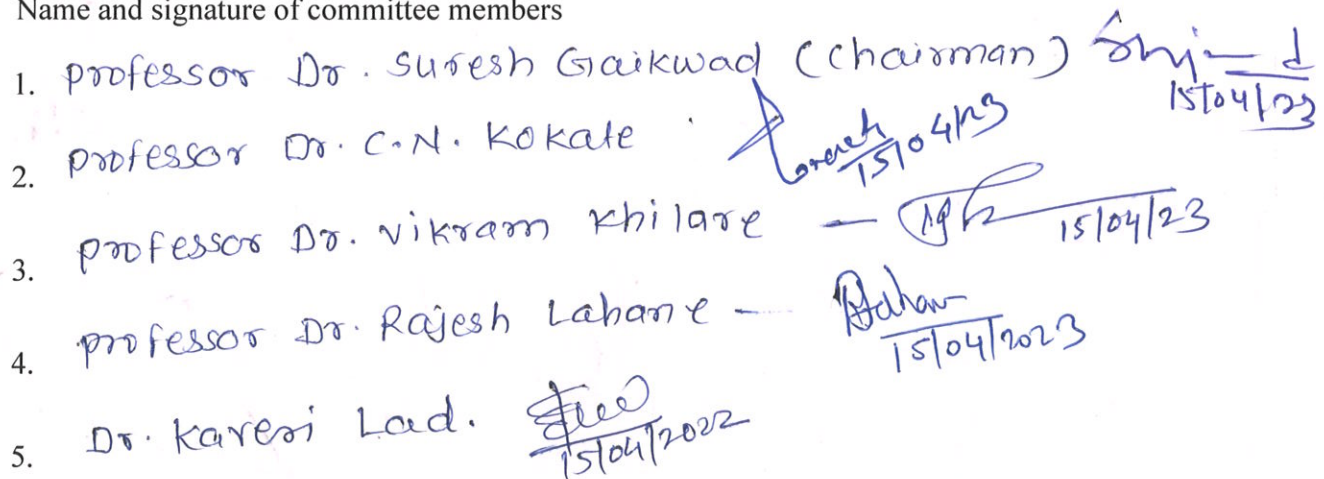 Name and signature of committee members
1. professor Dr. Suresh Gaikwad (Chairman)
15/04/23
2. professor Dr. C.N. Kokate
15/04/23
3. professor Dr. Vikram Khilare - 15/04/23
4. professor Dr. Rajesh Lahane -
15/04/2023
5. Dr. Kaveri Lad.
15/04/2022